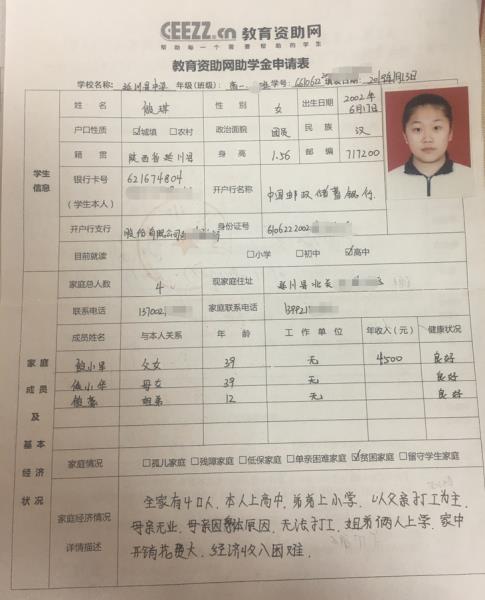 GEEZZ.cn 教育资助网
帮助每一个需要帮助的学生
教育资助网助学金申请表
学校名称: 延川县中学 年级(班级): 高一 班 学号: 6610622 填表日期: 2019年1月13日
姓 名 琪 性 别 女 出生日期 2002年6月17日
户口性质 ☑城填 □农村 政治面貌 团员 民 族 汉
籍 贯 陕西省延川县 身 高 1.56 邮 编 717200
学生信息
银行卡号 (学生本人) 621674804 开户行名称 中国邮政储蓄银行
开户行支行 股份有限公司 身份证号 610622 2002
目前就读 □小学 □初中 ☑高中
家庭总人数 4 现家庭住址 延川县北关
联系电话 137002 家庭联系电话 139921
成员姓名 与本人关系 年 龄 工 作 单 位 年收入(元) 健康状况
小 父女 39 无 4500 良好
小华 母女 39 无 良好
姐弟 12 无 良好
家庭成员及基本经济状况
家庭情况 □孤儿家庭 □残障家庭 □低保家庭 □单亲困难家庭 ☑贫困家庭 □留守学生家庭
家庭经济情况详情描述
全家有4口人,本人上高中,弟弟上小学,以父亲打工为主,
母亲无业,母亲因身体原因,无法打工,姐弟俩人上学,家中
开销花费大,经济收入困难.